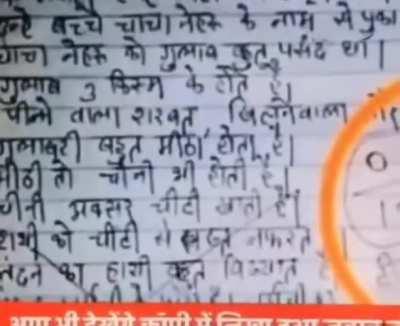 बच्चे चाचा नेहरू के नाम से पुका
चाचा नेहरू को गुलाब बहुत पसंद था।
गुलाब 3 किस्म के होते है।
पीने वाला शरबत खिलनेवाला और
गुलाबरी बहुत मीठा होता है।
मीठी तो चीनी भी होती है।
चीनी अक्सर चीटी खाती है।
हाथी को चीटी से बहुत नफरत
लंदन का हाथी बहुत विख्यात है
आप भी देखेंगे कॉपी में लिखा हुआ जवाब